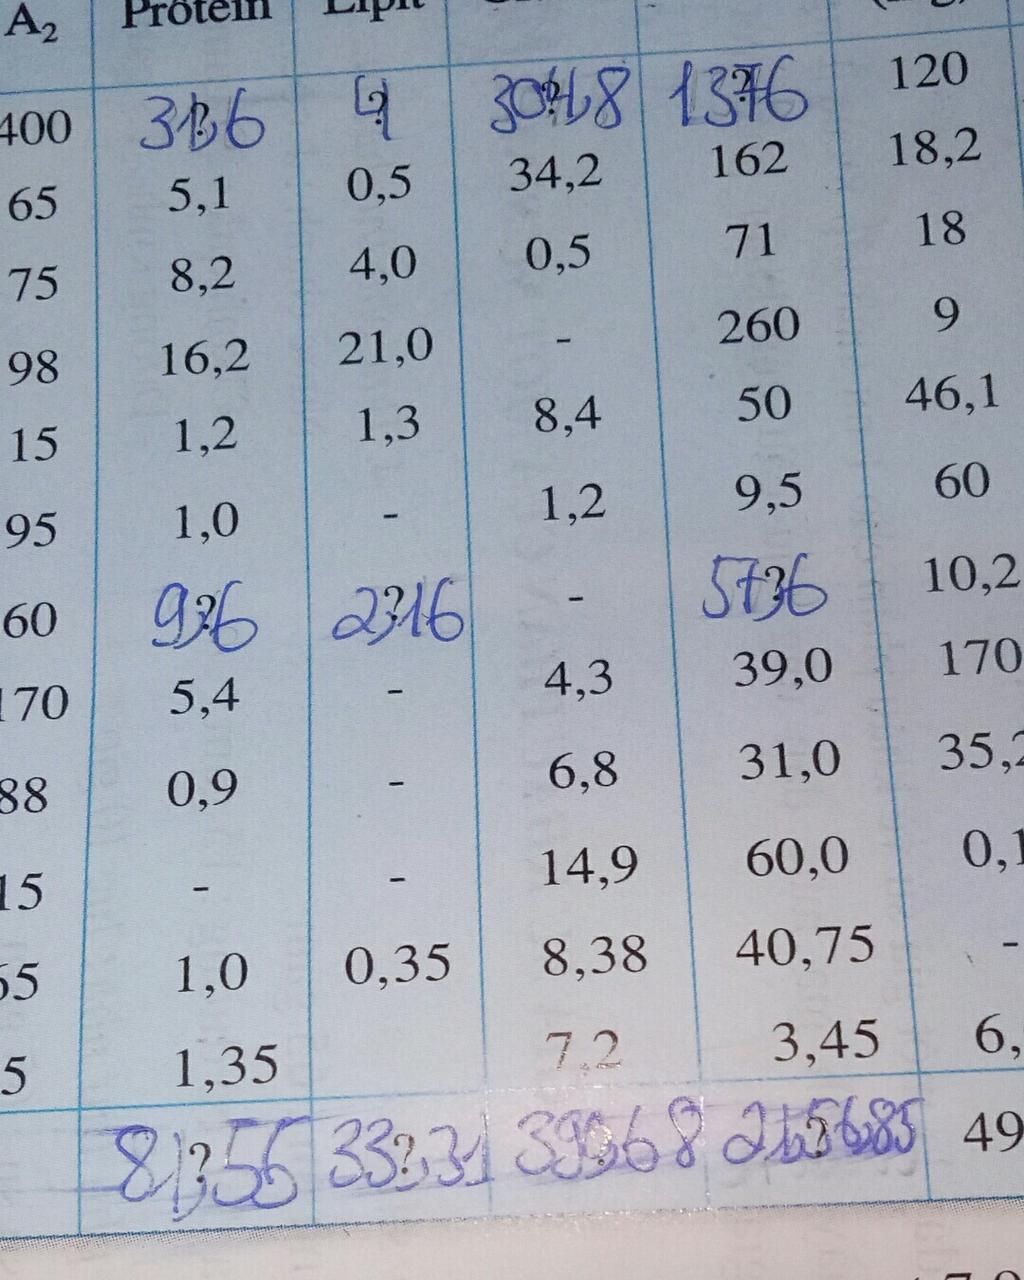 A2 Prôtêin Lipit
400 31,6 4 304,8 1376 120
65 5,1 0,5 34,2 162 18,2
75 8,2 4,0 0,5 71 18
98 16,2 21,0 - 260 9
15 1,2 1,3 8,4 50 46,1
95 1,0 - 1,2 9,5 60
60 9,6 2,16 - 57,6 10,2
170 5,4 - 4,3 39,0 170
88 0,9 - 6,8 31,0 35,2
15 - - 14,9 60,0 0,1
65 1,0 0,35 8,38 40,75 -
5 1,35 7,2 3,45 6,
81,55 33,31 49